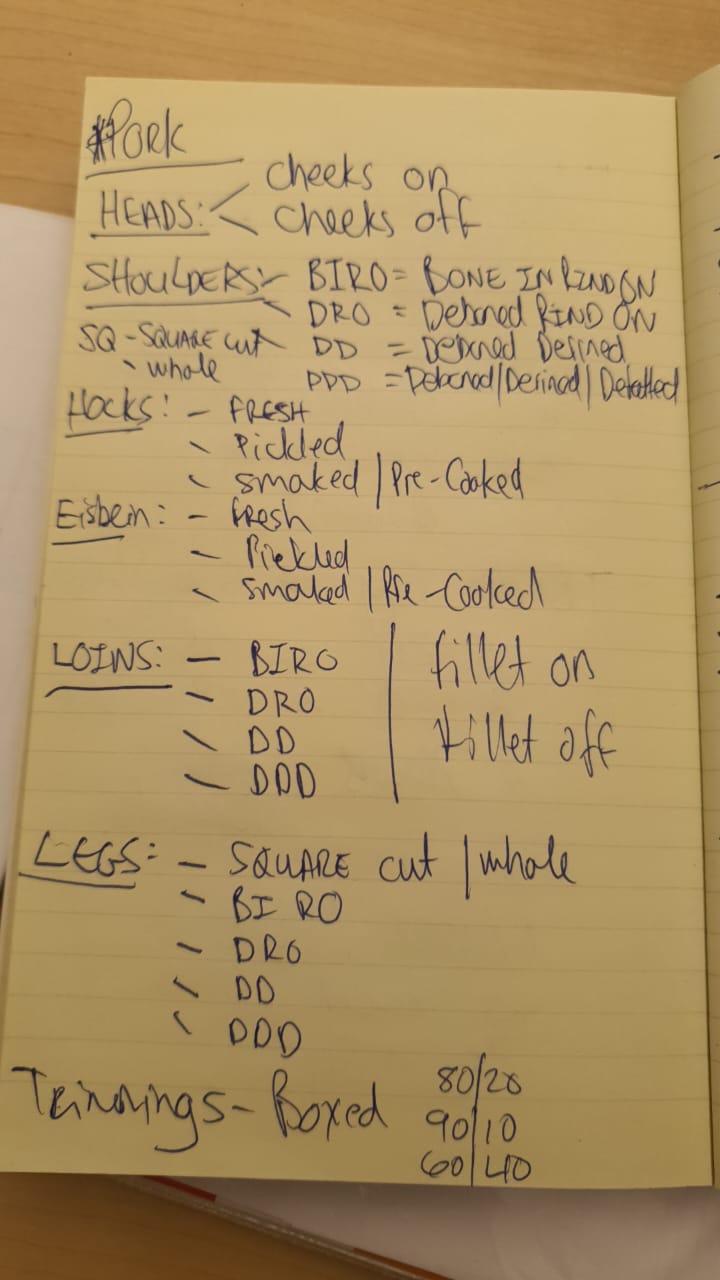 *PORK
HEADS: < cheeks on
cheeks off
SHOULDERS: - BIRO = BONE IN RIND ON
- DRO = Deboned RIND ON
SQ - SQUARE cut - DD = Deboned Derined
- whole DDD = Deboned/Derined/Defatted
Hocks: - FRESH
- Pickled
- Smoked | Pre-Cooked
Eisbein: - fresh
- Pickled
- Smoked | Pre-Cooked
LOINS: - BIRO | fillet on
- DRO
- DD | fillet off
- DDD
LEGS: - SQUARE cut | whole
- BI RO
- DRO
- DD
- DDD
Trimmings - Boxed 80/20
90/10
60/40